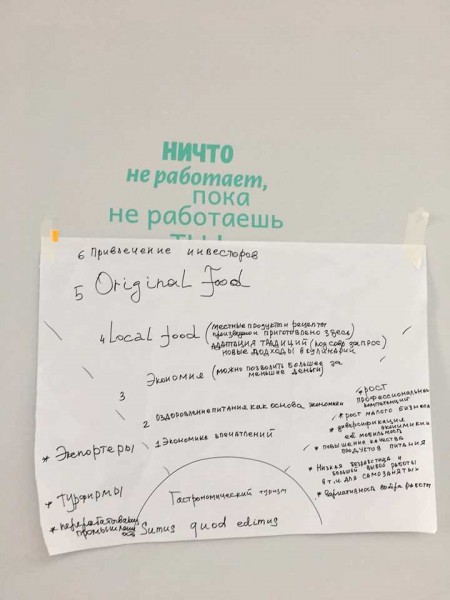 НИЧТО
не работает,
пока
не работаешь
ТЫ!
6 Привлечение инвесторов
5 Original Food
4 Local food (местные продукты и рецепты
произведено и приготовлено здесь)
Адаптация традиций (под совр запрос)
новые подходы в кулинарии
3 Экономия (можно позволить большее за
меньшие деньги)
2 Оздоровление питания как основа экономии
1 Экономика впечатлений
Гастрономический туризм
Sumus quod edimus
* Экспортеры
* Турфирмы
* перерабатывающ
промышлен
* рост
профессиональных
компетенций
* рост малого бизнеса
* диверсификация
экономики
её мобильность
* повышение качества
продуктов питания
* Низкая безработица и
большой выбор работы
в т.ч. для самозанятых
* вариативность выбора работ